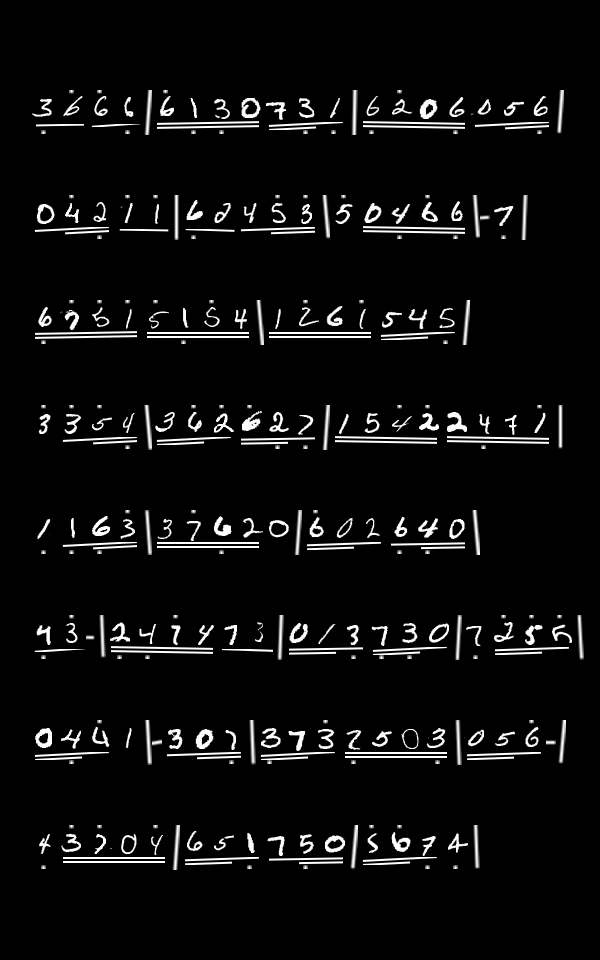 3666|6130731|6206056
04211|62453|50466|-7
67515154|1261545
3354|362627|15422471
1163|37620|602640
43-|2474473|013730|7255
0441|-307|3732503|056-|
43704|651750|5674|